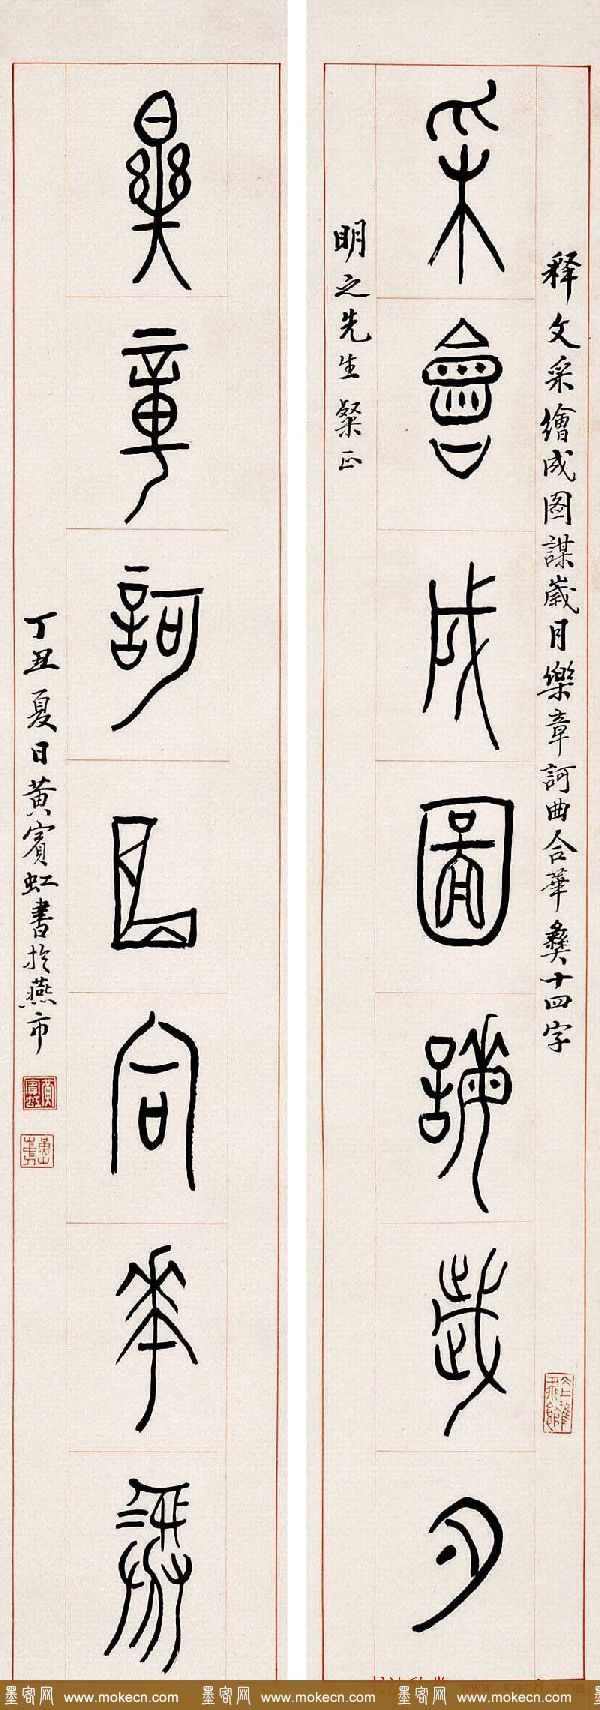 采會成圖謀歲月
釋文采繪成图謀歲月樂章訶曲合華彝十四字
明之先生粲正
樂章訶曲合華彝
丁丑夏日黄賓虹書於燕市
墨客网 www.mokecn.com 墨客网 www.mokecn.com 墨客网 www.mokecn.com